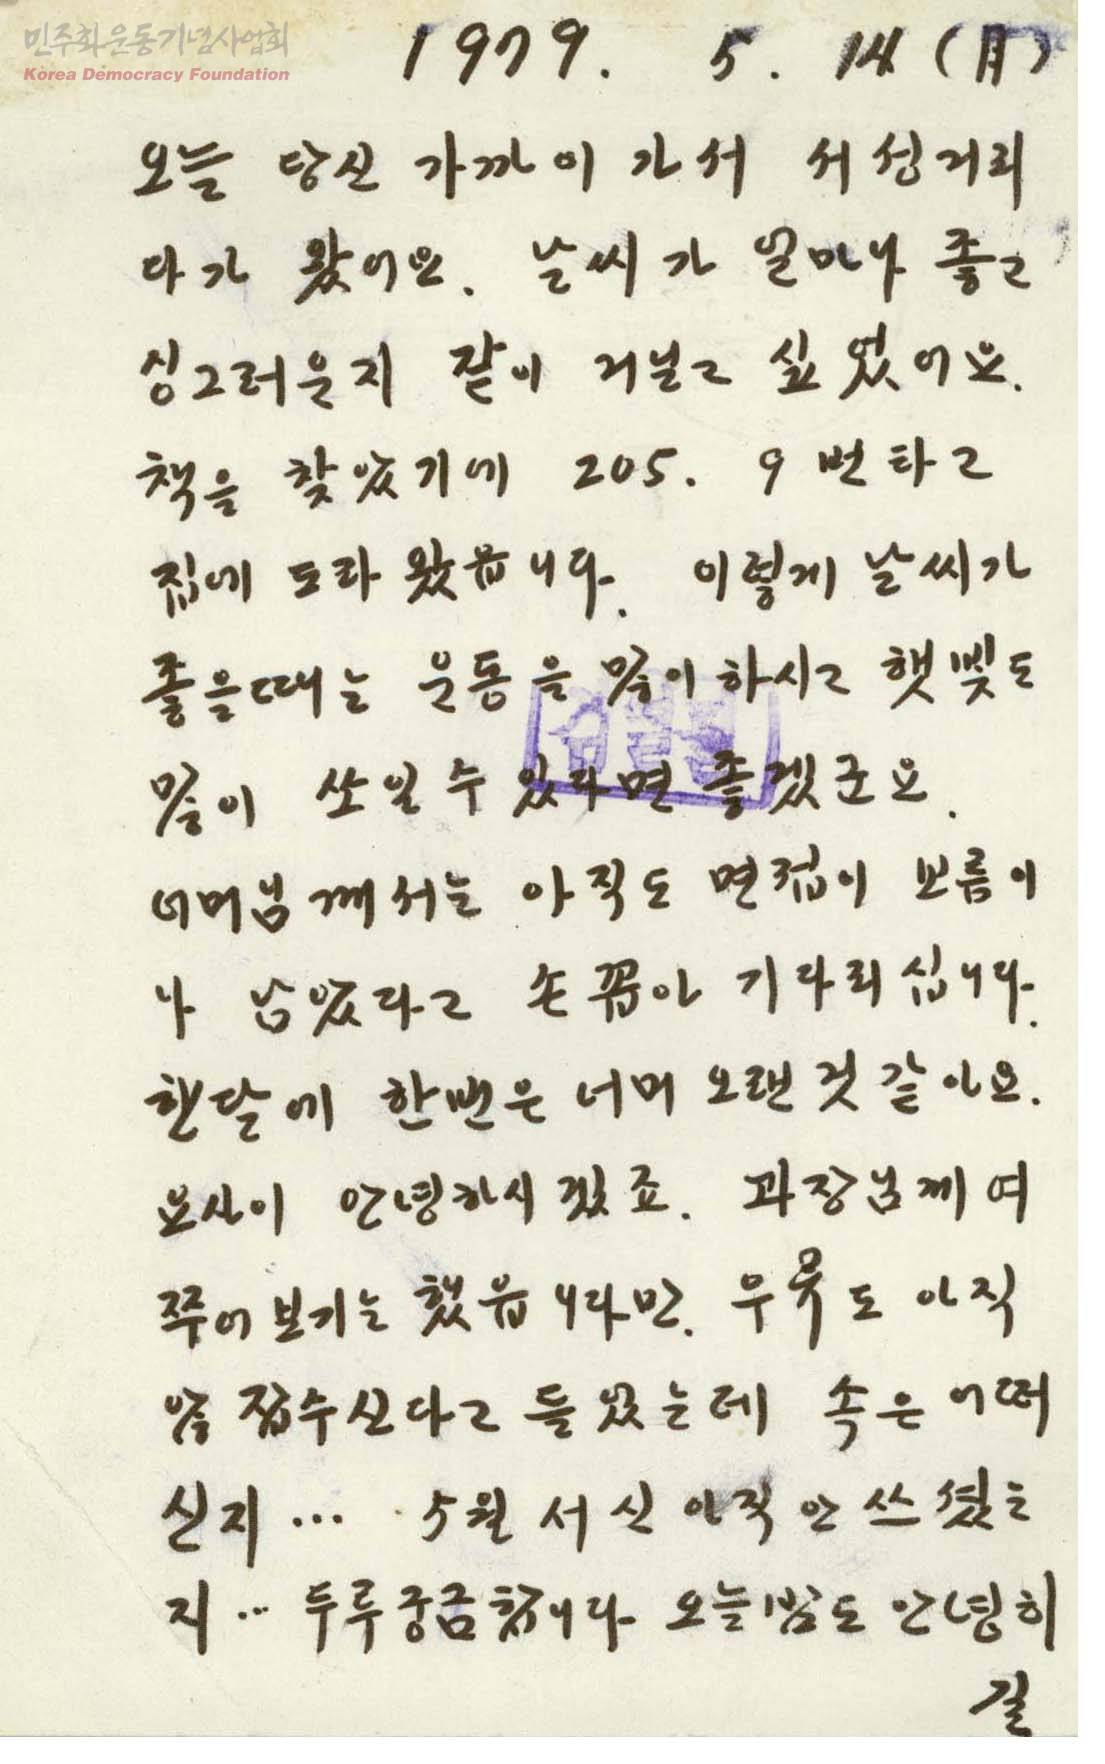 민주화운동기념사업회
Korea Democracy Foundation
1979. 5. 14 (月)
오늘 당신 가까이 가서 서성거리
다가 왔어요. 날씨가 얼마나 좋고
싱그러운지 같이 거닐고 싶었어요.
책을 찾았기에 205. 9번 타고
집에 도라왔읍니다. 이렇게 날씨가
좋을때는 운동을 많이 하시고 햇빛도
많이 쏘일 수 있다면 좋겠군요.
어머님께서는 아직도 면접이 보름이
나 남았다고 손꼽아 기다리십니다.
한달에 한번은 너머 오랜것 같아요.
요사이 안녕하시겠죠. 과장님께 여
쭈어보기는 했읍니다만. 우유도 아직
안 잡수신다고 들었는데 속은 어떠
신지 ··· 5월 서신 아직 안 쓰셨는
지 ··· 두루 궁금합니다 오늘밤도 안녕히
길